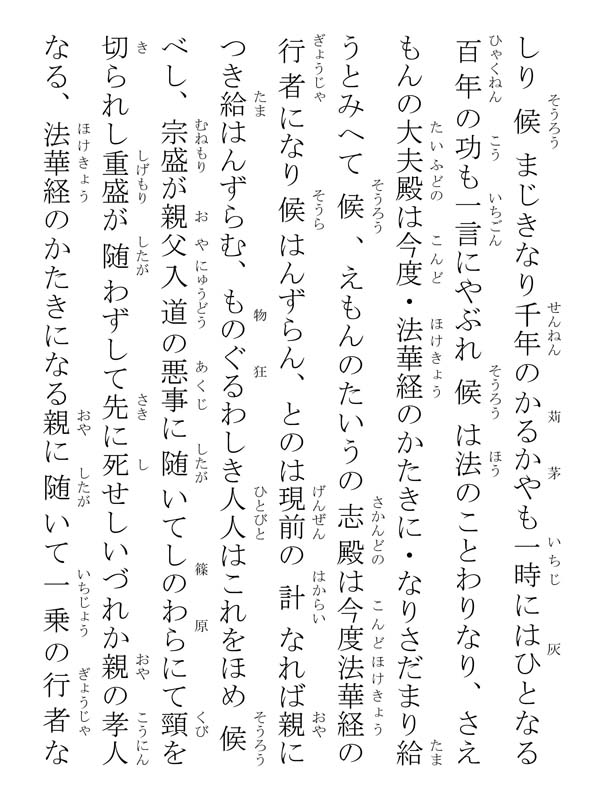 しり候まじきなり千年のかるかやも一時にはひとなる
百年の功も一言にやぶれ候は法のことわりなり、さえ
もんの大夫殿は今度・法華経のかたきに・なりさだまり給
うとみへて候、えもんのたいうの志殿は今度法華経の
行者になり候はんずらん、とのは現前の計なれば親に
つき給はんずらむ、ものぐるわしき人人はこれをほめ候
べし、宗盛が親父入道の悪事に随いてしのわらにて頸を
切られし重盛が随わずして先に死せしいづれか親の孝人
なる、法華経のかたきになる親に随いて一乗の行者な